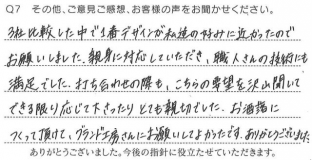 Q7 その他、ご意見ご感想、お客様の声をお聞かせください。
3社比較した中で1番デザインが私達の好みに近かったので
お願いしました。親身に対応していただき、職人さんの技術にも
満足でした。打ち合わせの際も、こちらの要望を沢山聞いて
できる限り応じて下さったりとても親切でした。お洒落に
つくって頂けて、グランド工房さんにお願いしてよかったです。ありがとうございました。
ありがとうございました。今後の指針に役立たせていただきます。